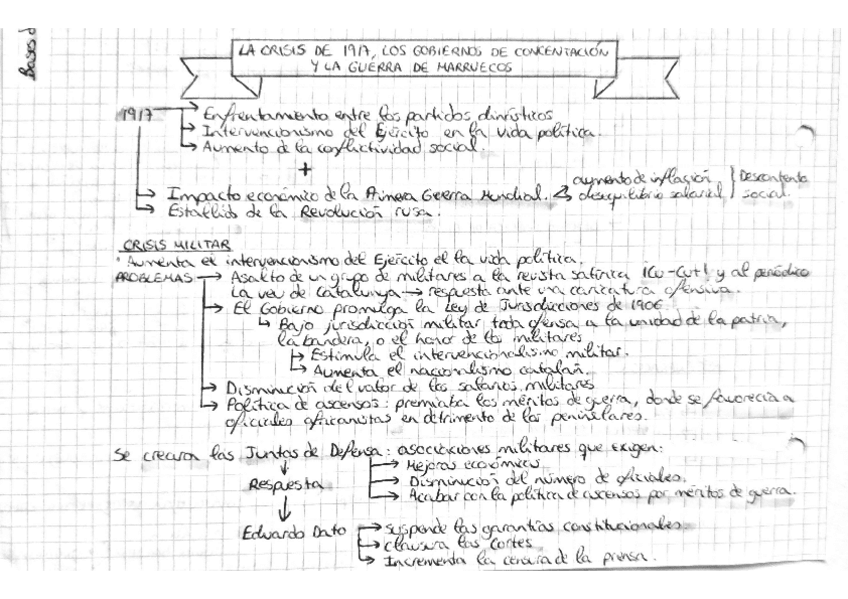 Bases d
LA CRISIS DE 1917, LOS GOBIERNOS DE CONCENTACIÓN
Y LA GUERRA DE MARRUECOS
1917 → Enfrentamiento entre los partidos dinásticos
→ Intervencionismo del Ejército en la vida política.
→ Aumento de la conflictividad social.
+
→ Impacto económico de la Primera Guerra Mundial. aumento de inflación desequilibrio salarial } Descontento social.
→ Estallido de la Revolución rusa.
CRISIS MILITAR
· Aumenta el intervencionismo del Ejército el la vida política.
PROBLEMAS → Asalto de un grupo de militares a la revista satírica ¡Cu-Cut! y al periódico
La veu de Catalunya → respuesta ante una caricatura ofensiva.
→ El Gobierno promulga la Ley de Jurisdicciones de 1906
↳ Bajo jurisdicción militar toda ofensa a la unidad de la patria,
la bandera, o el honor de los militares
→ Estimula el intervencionalismo militar.
→ Aumenta el nacionalismo catalán.
→ Disminución del valor de los salarios militares
→ Política de ascensos: premiaba los méritos de guerra, donde se favorecía a
oficiales africanistas en detrimento de los peninsulares.
Se crearon las Juntas de Defensa: asociaciones militares que exigen:
→ Mejoras económicas
Respuesta → Disminución del número de oficiales.
→ Acabar con la política de ascensos por méritos de guerra.
Eduardo Dato → suspende las garantías constitucionales
→ clausura las Cortes
→ Incrementa la censura de la prensa.